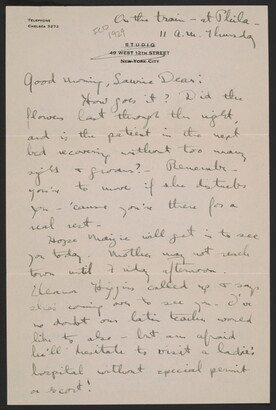 TELEPHONE
CHELSEA 5272
On the train - at Phila -
11 A.M. Thursday
1929
STUDIO
49 WEST 12TH STREET
NEW YORK CITY
Good Morning, Dear:
How goes it? Did the
flowers last through the night,
and is the patient in the next
bed recovering without too many
sighs & groans? - Remember -
you're to move if she disturbs
you - 'cause you're there for a
real rest -
Hope Maizie will get in to see
you today. Mother may not reach
town until Friday afternoon.
Eleanor Higgins called up & says
she's coming over to see you. I've
no doubt our latin teacher would
like to also - but am afraid
he'll hesitate to visit a ladies
hospital without special permit
or escort!